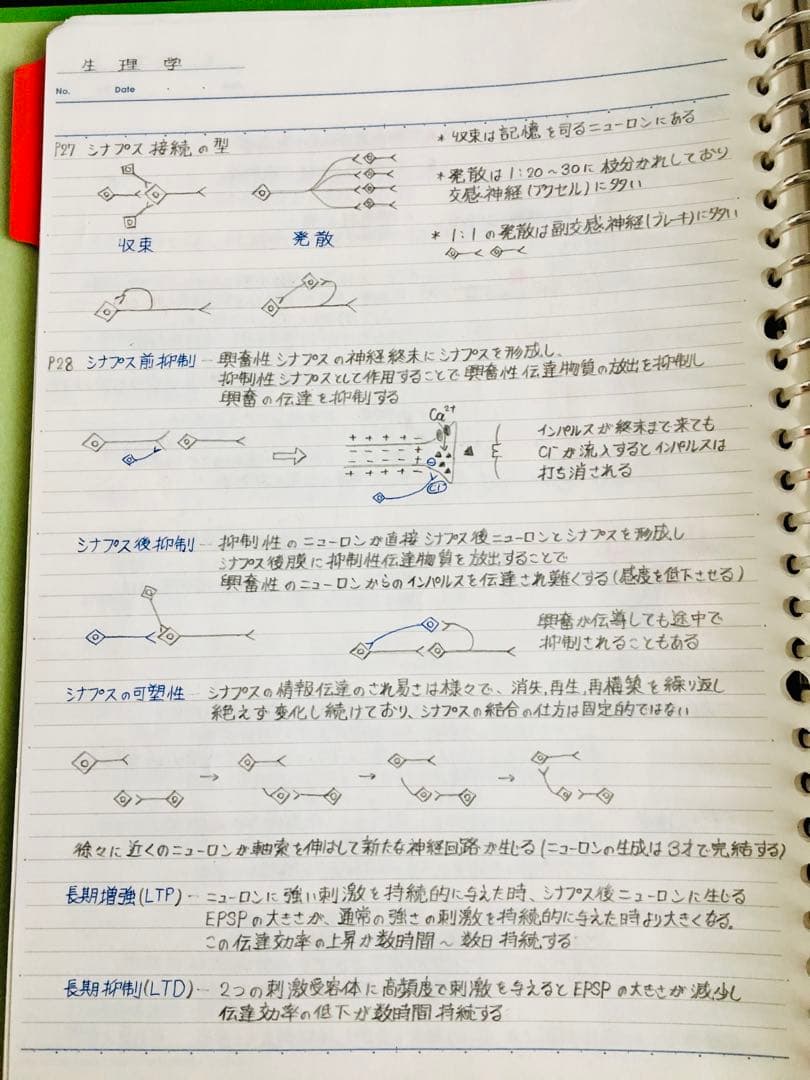 生理学
No. Date
P27 シナプス接続の型
収束
発散
＊収束は記憶を司るニューロンにある
＊発散は1:20～30に枝分かれしており
交感神経(アクセル)に多い
＊1:1の発散は副交感神経(ブレーキ)に多い
P28 シナプス前抑制 ― 興奮性シナプスの神経終末にシナプスを形成し、
抑制性シナプスとして作用することで興奮性伝達物質の放出を抑制し
興奮の伝達を抑制する
Ca²⁺
+ + + + +
- - - -
- - - -
+ + + + +
Cl⁻
インパルスが終末まで来ても
Cl⁻が流入するとインパルスは
打ち消される
シナプス後抑制 ― 抑制性のニューロンが直接シナプス後ニューロンとシナプスを形成し
シナプス後膜に抑制性伝達物質を放出することで
興奮性のニューロンからのインパルスを伝達され難くする(感度を低下させる)
興奮が伝導しても途中で
抑制されることもある
シナプスの可塑性 ― シナプスの情報伝達のされ易さは様々で、消失,再生,再構築を繰り返し
絶えず変化し続けており、シナプスの結合の仕方は固定的ではない
徐々に近くのニューロンが軸索を伸ばして新たな神経回路が生じる(ニューロンの生成は3才で完結する)
長期増強(LTP) ― ニューロンに強い刺激を持続的に与えた時、シナプス後ニューロンに生じる
EPSPの大きさが、通常の強さの刺激を持続的に与えた時より大きくなる。
この伝達効率の上昇が数時間～数日持続する
長期抑制(LTD) ― 2つの刺激受容体に高頻度で刺激を与えるとEPSPの大きさが減少し
伝達効率の低下が数時間持続する